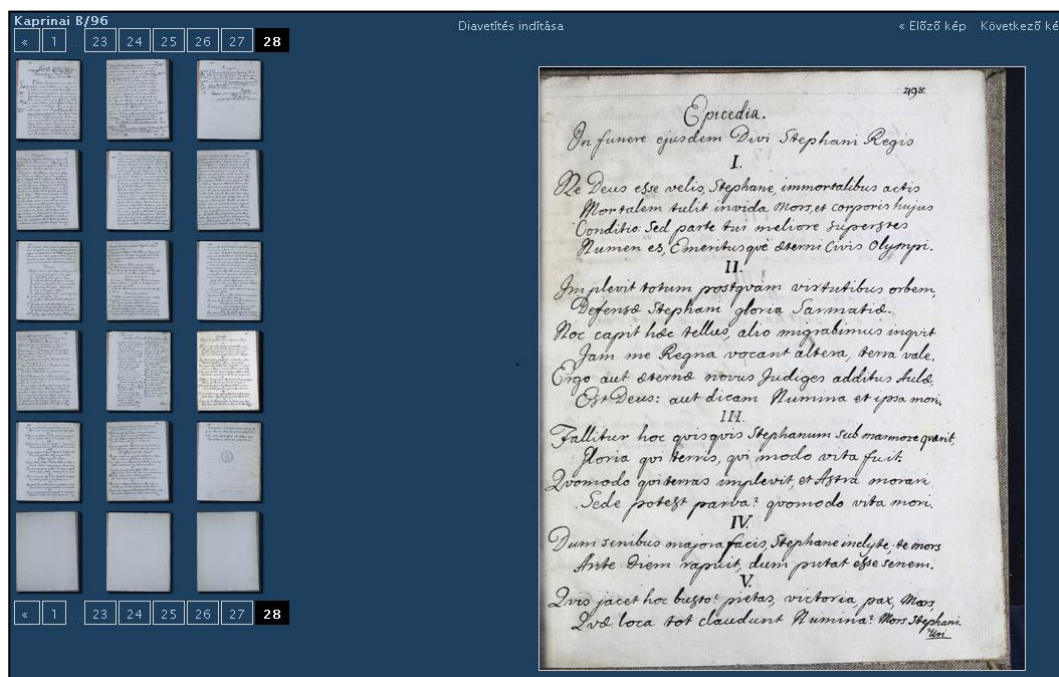 Kaprinai B/96
Diavetítés indítása
« Előző kép Következő ké
« 1 ... 23 24 25 26 27 28
498.
Epicedia.
In funere ejusdem Divi Stephani Regis
I.
Ne Deus esse velis, Stephane, immortalibus actis
Mortalem tulit invida Mors, et corporis hujus
Conditio: Sed parte tui meliore superstes
Numen es, Emeritusqve æterni Civis Olympi.
II.
Implevit totum postqvam virtutibus orbem,
Defensæ Stephani gloria Sarmatiæ.
Noc capit hæc tellus, alio migrabimus inqvit
Jam me Regna vocant altera, terra vale.
Ergo aut æternæ novus Judiges additus Aulæ,
Est Deus: aut dicam Numina et ipsa mori.
III.
Fallitur hoc qvisqvis Stephanum sub marmore qværit,
Gloria qvi terris, qvi modo vita fuit.
Qvomodo qvi terras implevit, et Astra morari
Sede potest parva? qvomodo vita mori.
IV.
Dum senibus majora facis, Stephane inclyte, te mors
Ante diem rapuit, dum putat esse senem.
V.
Qvis jacet hoc busto? pietas, victoria, pax, Mars,
Qvæ loca tot claudunt Numina? Mors Stephani.
« 1 ... 23 24 25 26 27 28